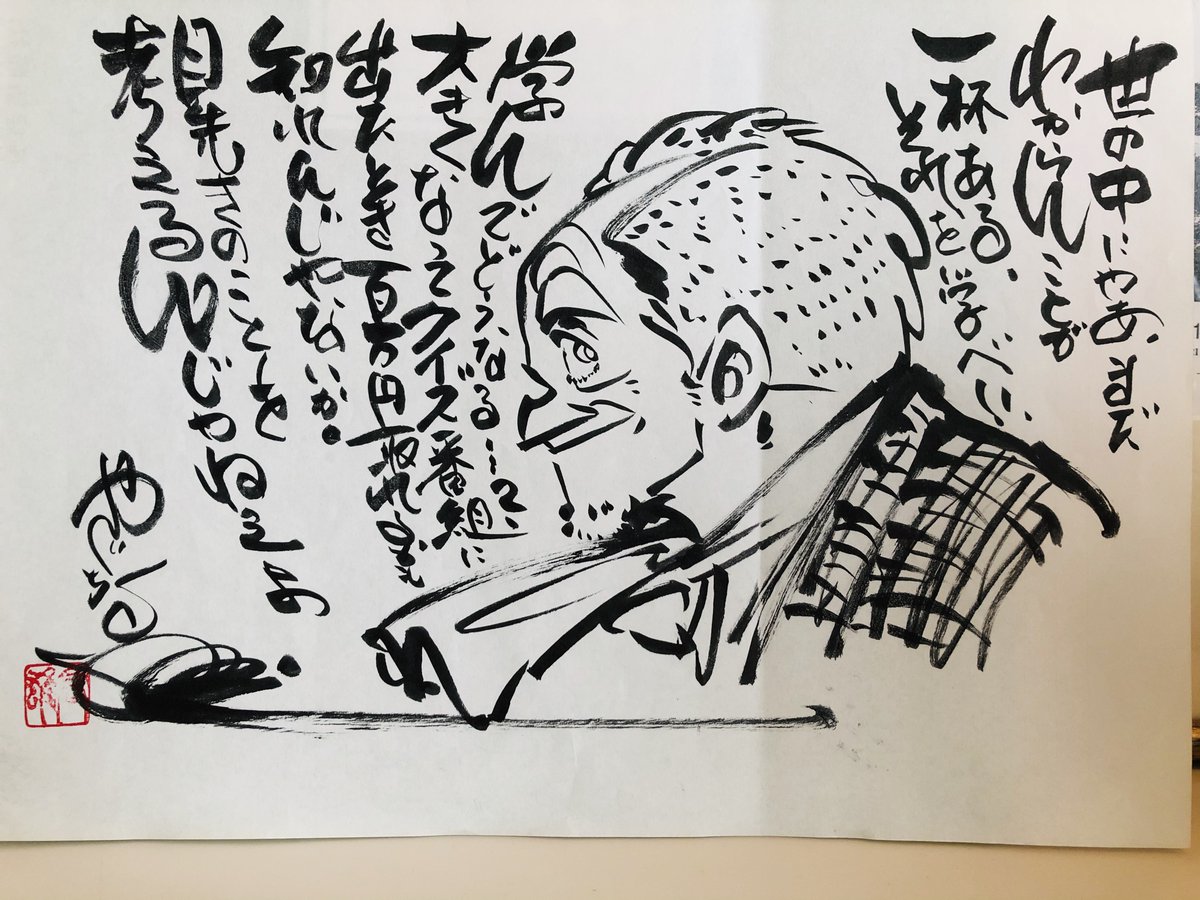 世の中にゃあ、まだ
わからんことが
一杯ある、
それを学べい、
学んでどうなる…?、
大きくなってクイズ番組に
出たとき百万円取れるかも
知れんじゃないか。
目先きのことを
考えるんじゃねえよ